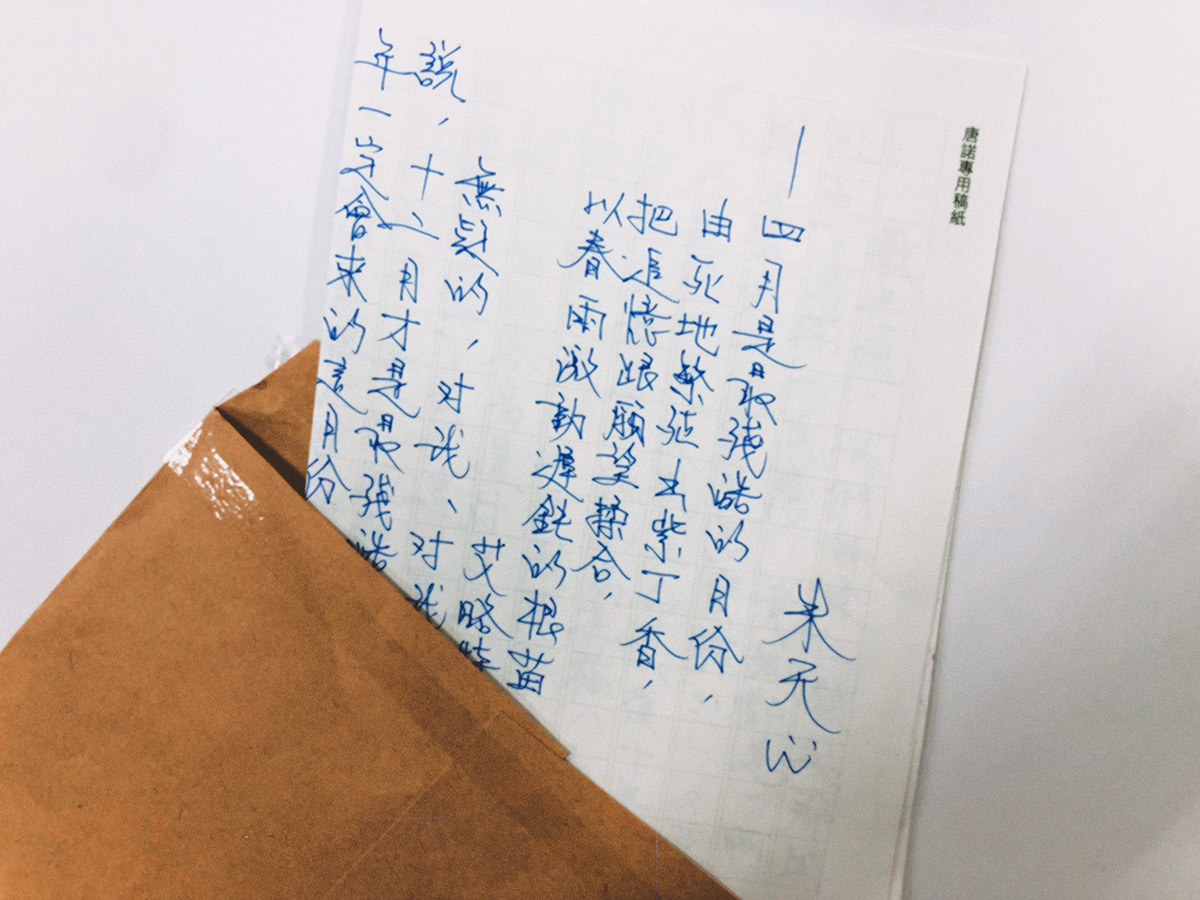 唐諾專用稿紙
朱天心
—四月是最殘酷的月份，
由死地繁殖出紫丁香，
把追憶跟願望揉合，
以春雨激動遲鈍的根苗
艾略特
無疑的，对我、对我
說，十二月才是最殘酷
年一定會來的這月份